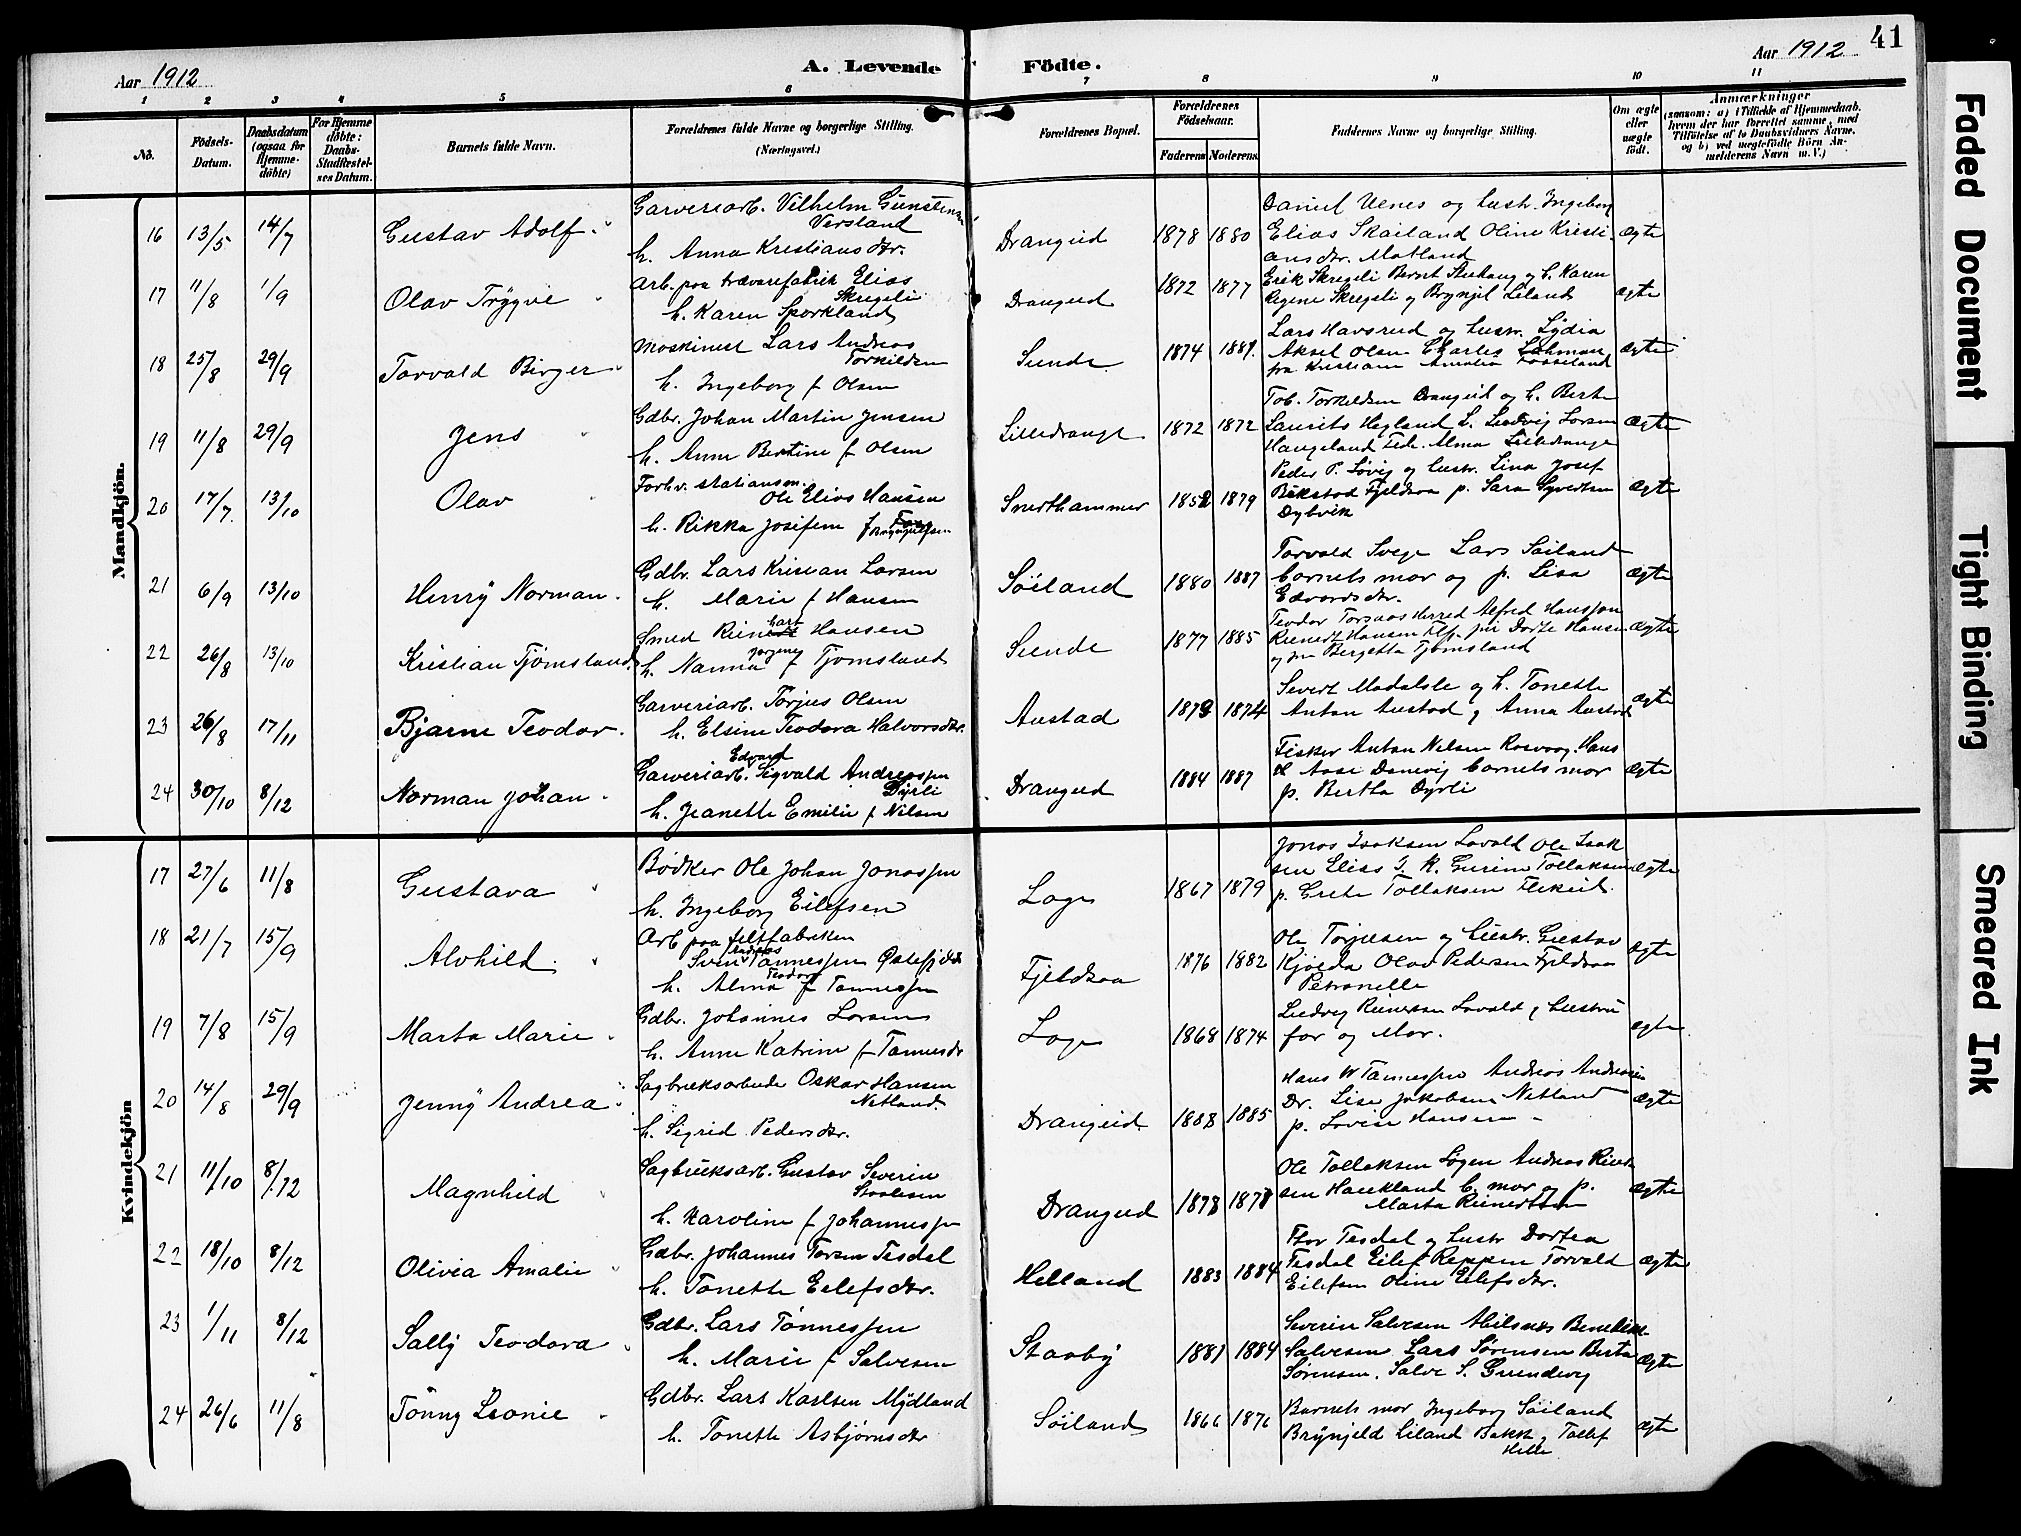 Aar 1912
A. Levende Födte.
Aar 1912
41
1 2 3 4 5 6 7 8 9 10 11
No.
Födsels-Datum.
Daabsdatum (ogsaa for Hjemme-döbte)
For Hjemme döbte: Daabs-Stadfæstelses Datum.
Barnets fulde Navn.
Forældrenes fulde Navne og borgerlige Stilling. (Næringsvei.)
Forældrenes Bopæl.
Forældrenes Födselsaar.
Faderens Moderens
Faddernes Navne og borgerlige Stilling.
Om ægte eller uægte födt.
Anmærkninger
(saasom: a) i Tilfælde af Hjemmedaab, hvem der har forrettet samme, med Tilföielse af to Daabsvidners Navne. og b) ved uegtefödte Börn Anmelderens Navn m. V.)
Mandkjön.
16 13/5 14/7 Gustav Adolf
Garveriarb. Vilhelm Gunstensen
Versland
h. Anna Kristiansdtr.
Drangeid 1878 1880
Daniel Uenes og hustr. Ingeborg
Elias Skailand Oline Kristi-
ansdtr. Motland
Ægte
17 11/8 1/9 Olav Trygve
Arb. paa trævarefabrik Elias
Skregeli
h. Karen Sporkland
Drangeid 1872 1877
Erik Skregeli Bernt Stuhaug og h. Karen
Regine Skregeli og Brynjil Liland
Ægte
18 25/8 29/9 Torvald Birger
Maskinist Lars Andreas
Torkildsen
h. Ingeborg f Olsen
Sunde 1874 1881.
Lars Havsrud og hustr. Lydia
Aksel Olsen Charles Lohman
fra Kristians Amalia Fosseland
Ægte
19 11/8 29/9 Jens
Gdbr. Johan Martin Jensen
h. Anne Bertine f Olsen
Lilledrange 1872 1872
Tob. Torkildsen Drangeid og h. Berte
Laurits Hegland L. Ludvig Larsen
Haugeland Fedr. Alma Lilledrange
Ægte
20 17/7. 13/10 Olav
Forhv. stationsm.
Ole Elias Hansen
h. Rikka Josefine f
Snerthammer 1852 1879
Peder P. Løvig og hustr. Lina Josef
Bikstad Fjeldsaa p. Sara Syvertsen
Dybvik
Ægte
21 6/9 13/10 Henry Norman.
Gdbr. Lars Kristian Larsen
h. Marie f Hansen
Søiland 1880 1887
Torvald Svege Lars Søiland
barnets mor og p. Lisa
Edvardsdtr.
Ægte
22 26/8 13/10 Kristian Tjømsland
Smed Rienert Hansen
h. Nanna Jørgine f Tjomsland
Sunde 1877 1885
Teodor Torsnes Herred Alfred Hanssen
Rienert Hansen Flp. pin Dorte Hansen
og pin Bergetta Tjømsland
Ægte
23 26/8 17/11 Bjarne Teodor.
Garveriarb. Torjus Olsen
h. Elsine Teodora Halvorsdtr.
Austad 1873 1874
Severt Modalsle og h. Tonette
Anton Austad og Anna Austad
Ægte
24 30/10 8/12 Norman Johan
Edvard
Garveriarb. Sigvald Andreassen
Dyrli
h. Jeanette Emilie f Nilsen
Drangeid 1884 1887
Fisker Anton Nilsen Rosvoog, Hans
H Aase Danevig barnets mor
p. Bertha Dyrli
Ægte
Kvindekjön
17 27/6 11/8 Gustava
Bødker Ole Johan Jonassen
h. Ingeborg Eilefsen
Loge 1867 1879
Jonas Isaksen Lavald Ole Isak-
sen Elias I. K. Gurine Tollaksen
p. Grete Tollaksen Flikeid.
Ægte
18 21/7 15/9 Alvhild.
Arb paa filtfabriken
Andreas
Sven Tønnessen Østefjeld
Teodora
h. Alma f Tønnessen
Fjeldsaa 1876 1882
Ole Torjusen og hustr. Gustav
Kjølda Olav Pedersen Fjeldsaa
Petronelle
Ægte
19 7/8 15/9 Marta Marie
Gdbr. Johannes Larsen
h. Anne Katrine f Tønnesdtr
Loge 1868 1874
Ludvig Reinertsen Lovald og hustru
far og Mor.
Ægte
20 14/8 29/9 Jenny Andrea
Sagbruksarbeide Oskar Hansen
Netland.
h. Sigrid Pedersdtr.
Drangeid. 1888 1885
Hans W Tønnessen Andreas Andreassen
Dr. Lise Jakobsen Netland
p. Lovise Hansen
Ægte
21 11/10 8/12 Magnhild
Sagbruksarb. Gustav Severin
Staalesen
h. Karoline f Johannessen
Drangeid 1878 1878
Ole Tollaksen Løgen Andreas Riert-
sen Haukland b. mor og p.
Marta Rienertsen
Ægte
22 18/10 8/12 Olivia Amalie
Gdbr. Johannes Torsen Tesdal
h. Tonette Eilefsdtr.
Helland 1883 1884
Thor Tesdal og hustr Dortea
Tesdal Eilef Reppen Torvald
Eilefsen Oline Eilefsdtr.
Ægte
23 1/11 8/12 Sally Teodora
Gdbr. Lars Tønnessen
h. Marie f Salvesen
Stasby 1881 1884
Severin Salvesen Abilsnes Benedikte
Salvesen. Lars Sørensen Berta
Sørensen. Salve S. Grundevig
Ægte
24 26/6 11/8 Tönny Leonie
Gdbr. Lars Karlsen Mydland
h. Tonette Asbjørnsdtr
Søiland 1866 1876
Barnets mor Ingeborg Søiland
Brynjeld Liland Bakke og Tollef
Helle
Ægte
Faded Document
Tight Binding
Smeared Ink